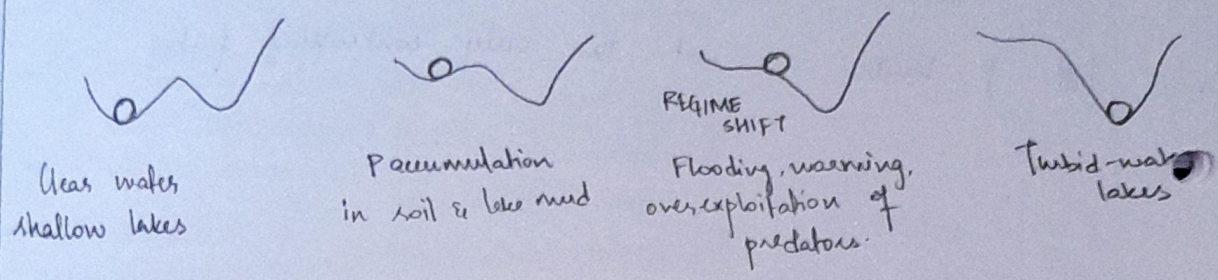 Clear water
shallow lakes
P accumulation
in soil & lake mud
REGIME
SHIFT
Flooding, warming,
overexploitation of
predators.
Turbid-wat
lakes